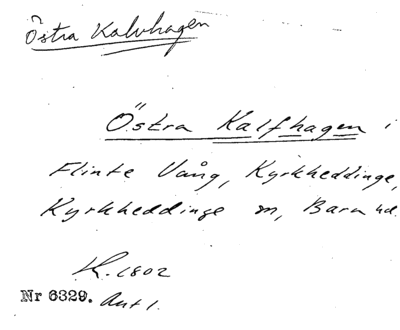 Östra Kalvhagen
Östra Kalfhagen i
Flinte Vång, Kyrkheddinge,
Kyrkheddinge sn, Bara hd.
K. 1802
Nr 6329. Akt 1.